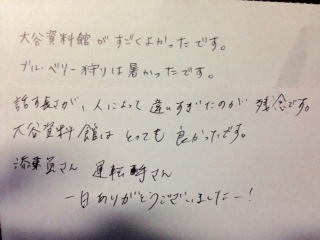 大谷資料館がすごくよかったです。
ブルーベリー狩りは暑かったです。
話す長さが、人によって違いすぎたのが残念です。
大谷資料館はとっても良かったです。
添乗員さん 運転手さん
一日ありがとうございましたー!